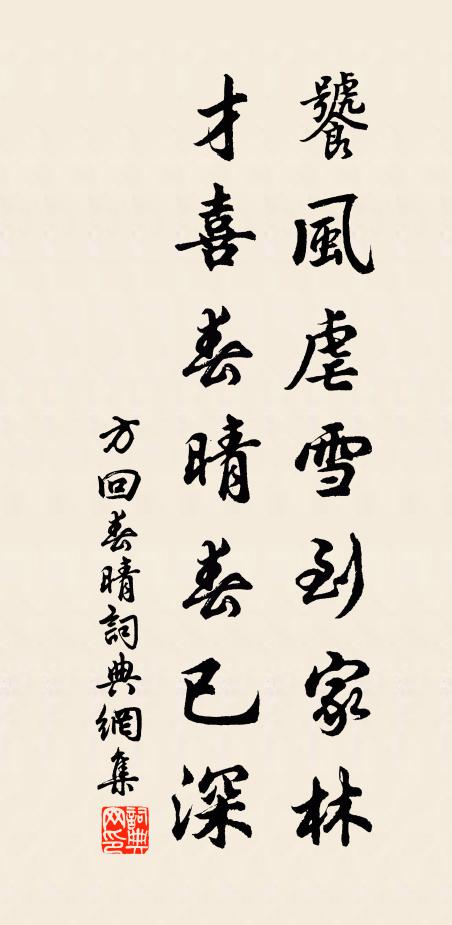 饕風虐雪到家林
才喜春晴春已深
方回春晴詞典網集
詞典網印